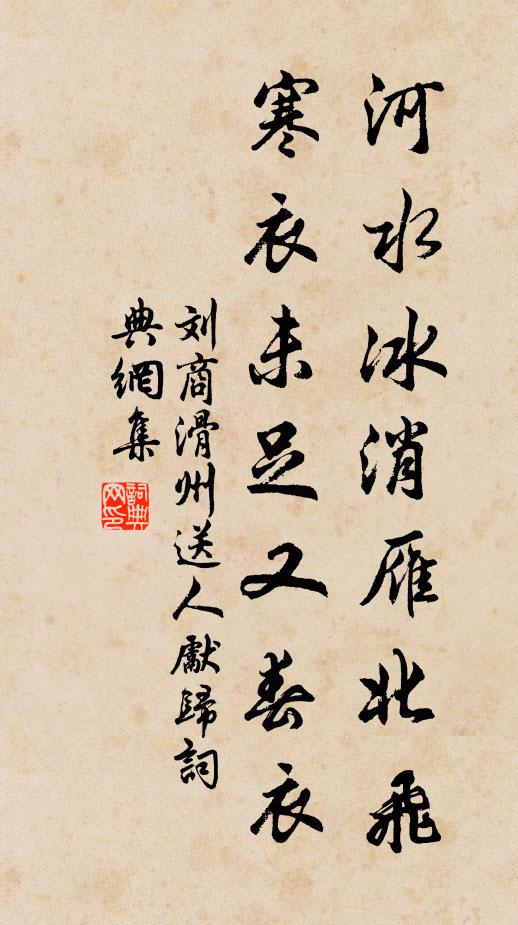 河水冰消雁北飛
寒衣未足又春衣
刘商滑州送人獻歸詞
典網集
詞典网印